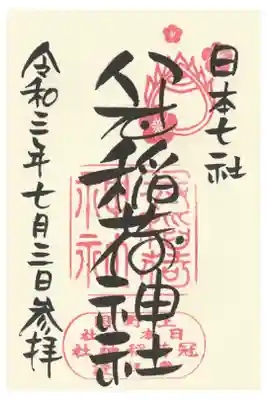 日本七社
冠稲荷神社
令和三年七月三日参拝